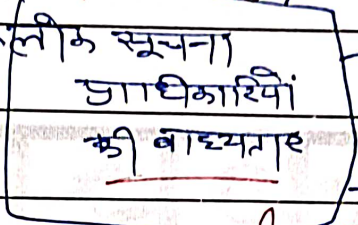 लोक सूचना
प्राधिकारियों
की बाध्यताए